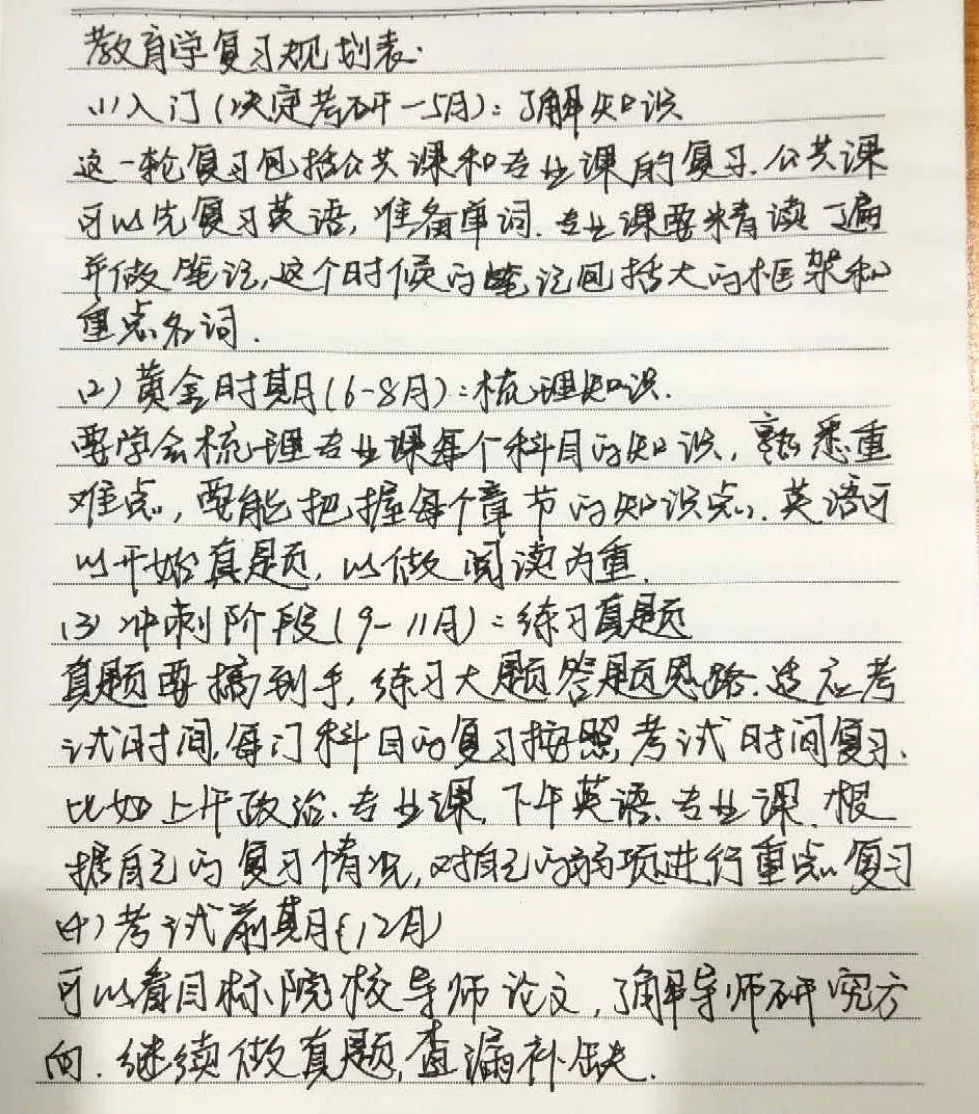 教育学复习规划表.
(1)入门(决定考研-5月):了解知识
这一轮复习包括公共课和专业课的复习.公共课
可以先复习英语,准备单词.专业课要精读1遍
并做笔记,这个时候的笔记包括大的框架和
重点名词.
(2)黄金时期(6-8月):梳理知识.
要学会梳理专业课每个科目的知识,熟悉重
难点,要能把握每个章节的知识点.英语可
以开始真题,以做阅读为重.
(3)冲刺阶段(9-11月):练习真题
真题要搞到手,练习大题答题思路.适应考
试时间,每门科目的复习按照考试时间复习.
比如上午政治、专业课,下午英语、专业课.根
据自己的复习情况,对自己的弱项进行重点复习
(4)考试前期(12月)
可以看目标院校导师论文,了解导师研究方
向.继续做真题,查漏补缺.